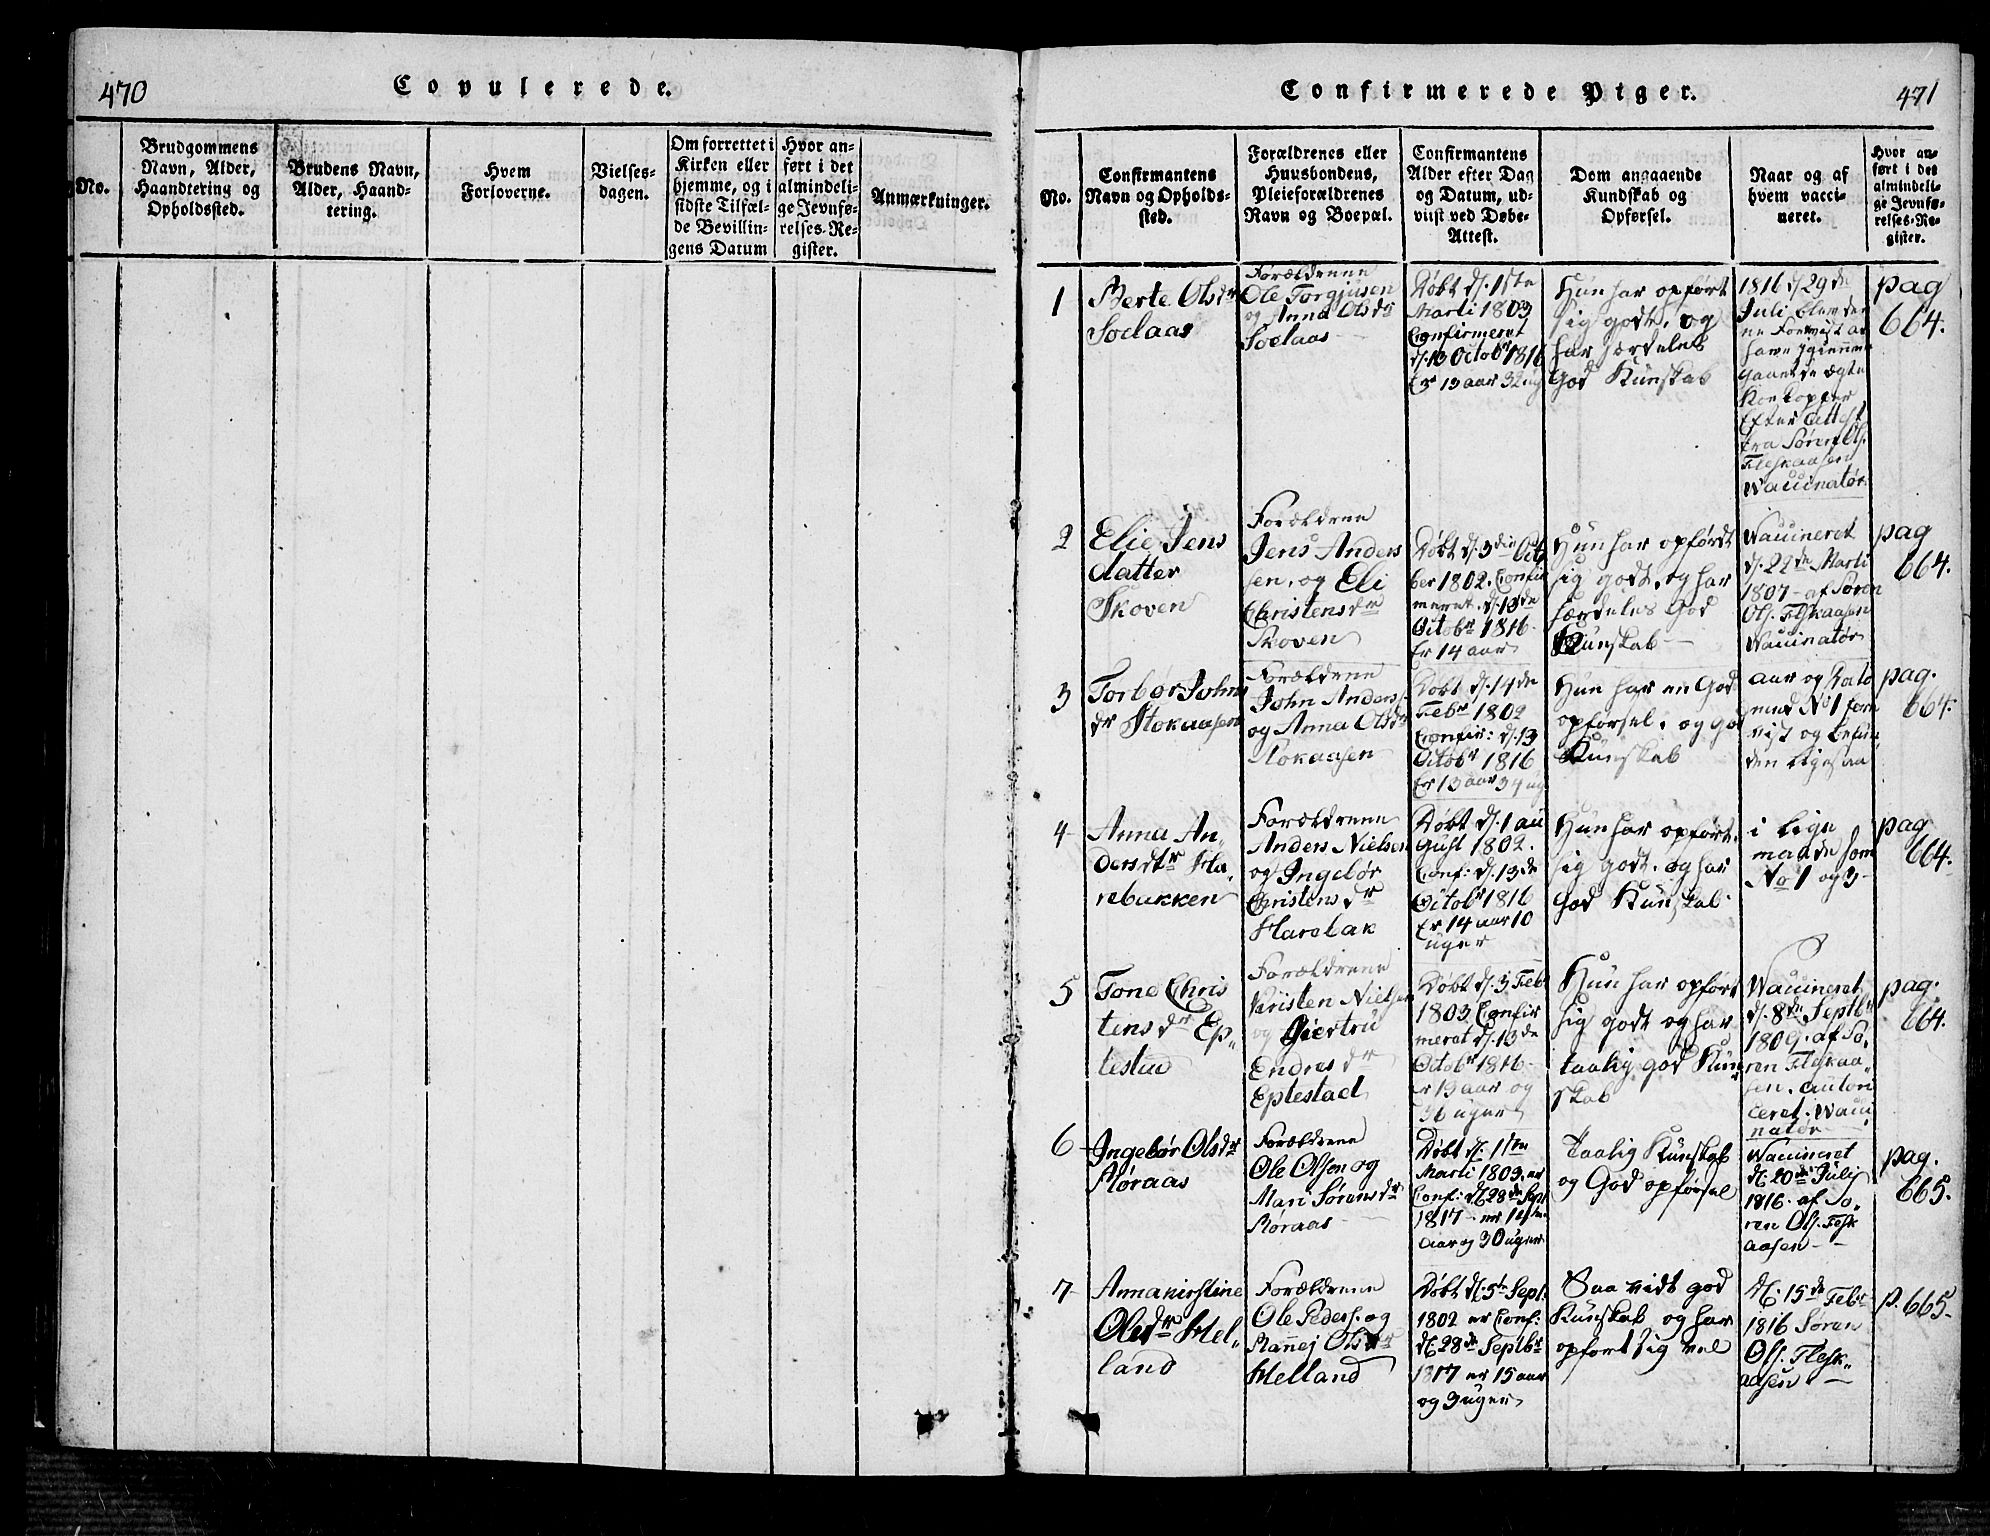 470
Copulerede.
No.
Brudgommens
Navn, Alder,
Haandtering og
Opholdssted.
Brudens Navn,
Alder, Haand-
tering.
Hvem
Forloverne.
Vielses-
dagen.
Om forrettet i
Kirken eller
hjemme, og i
sidste Tilfæl-
de Bevillin-
gens Datum
Hvor an-
ført i det
almindeli-
ge Jevnfø-
relses-Re-
gister.
Anmærkninger.
Confirmerede Piger.
471
No.
Confirmantens
Navn og Opholds-
sted.
Forældrenes eller
Huusbondens,
Pleieforældrenes
Navn og Boepæl.
Confirmantens
Alder efter Dag
og Datum, ud-
viist ved Døbe-
Attest.
Dom angaaende
Kundskab og
Opførsel.
Naar og af
hvem vacci-
neret.
Hvor an-
ført i det
almindeli-
ge Jevnfø-
relses-Re-
gister.
1
Berte Olsdr
Soelaas
Forældrene
Ole Torgjusen
og Anna Olsdr
Soelaas
Døbt d. 1ste
Marti 1803
Confirmeret
d. 13 Octobr 1816
Er 13 aar 32 ug
Hun har opført
sig godt, og
har særdeles
God Kunskab
1816 d. 29de
Juli blev den
ne Forevist at
have igiennem
gaaet de ægte
Koekopper
Efter Attest
fra Søren Ols.
Fleskaasen
Waccinatør
pag
664.
2
Elie Jens
datter
Skoven
Forældrene
Jens Anders
sen, og Eli
Christensdr
Skoven
Døbt d. 3die Octo
ber 1802. Confir
meret d. 13de
Octobr 1816
Er 14 aar
Hun har opførdt
sig godt, og har
særdeles God
Kunskab
Waccineret
d. 22de Marti
1807 - af Søren
Ols. Fleskaasen
Waccinatør
pag
664.
3
Torbør Johns
dr Stokaasen
Forældrene
John Anders.
og Anna Olsdr
Stokaasen
Døbt d. 14de
Febr 1802
Confir: d. 13
Octobr 1816
Er 13 aar 34 ug
Hun har en God
opførsel, og god
Kunskab
aar og Dato
med No 1 fore
vist og befun,
den ligesaa
pag.
664.
4
Anna An,
dersdtr Ha,
rebakken
Forældrene
Anders Nielsen
og Ingebør
Christensdr
Harebak
Døbt d. 1 au
Gust 1802.
Conf: d. 13de
Octobr 1816
Er 14 aar 10
uger
Hun har opført
sig godt, og har
God Kunskab
i lige
maade som
No 1 og 3
pag
664.
5
Tone Chris
tensdr Ep,
lestad
Forældrene
Kristen Nielsen
og Giertru
Endresdr
Eplestad
Døbt d. 3 Feb
1803 Confir
meret d. 13de
Octobr 1816
er 13 aar og
36 uger
Hun har opført
sig godt og har
taalig god Kun
skab
Waccineret
d. 8de Septbr
1809. af Sø,
ren Fleskaa,
sen, autori
ceret Wacci
natør
pag.
664.
6
Ingebør Olsdr
Røraas
Forældrene
Ole Olsen og
Mari Sørensdr
Røraas
Døbt d. 1ste
Marti 1803, er
Conf: d. 28de Sept
1817
aar og 30 uger
Taalig Kunskab
og God opførsel
Waccineret
d. 20de Julij
1816. af Sø,
ren Ols. Flesk
aasen
pag.
665.
7
Annakirstine
Olsdr Hel,
land
Forældrene
Ole Peders. og
Rannej Olsdr
Helland
Døbt d. 5te Sept.
1802 er Conf:
d. 28de Septbr
1817 er 15 aar
og 3 uger
Saa vidt god
Kunskab og har
opført sig vel
d. 15de Febr
1816 Søren
Ols. Flesk,
aasen
p. 665.